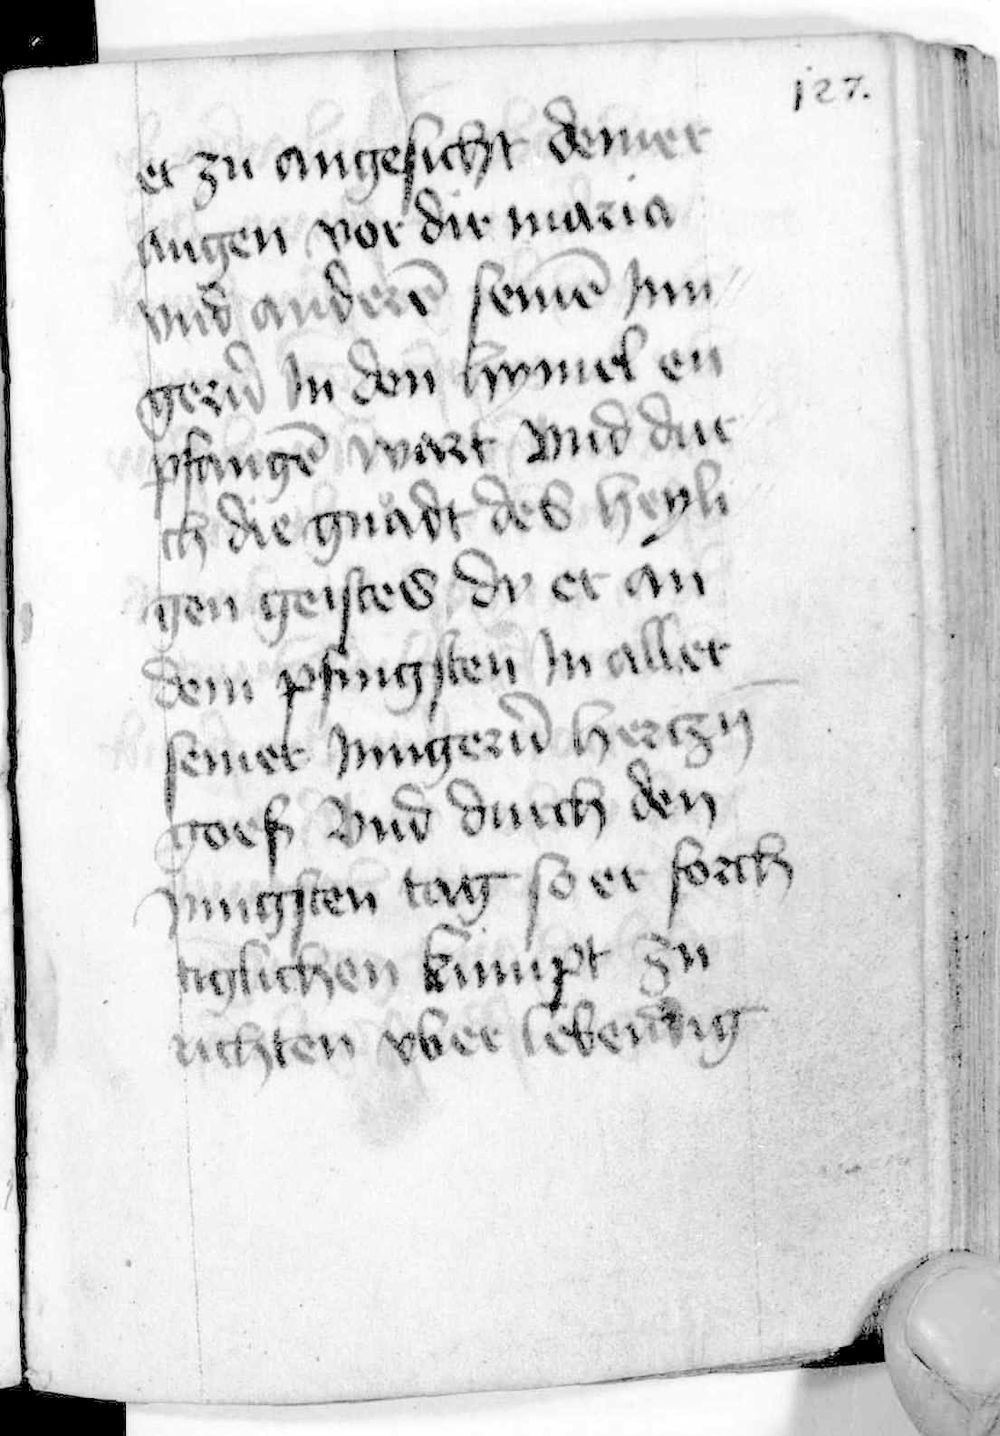 127.
er zu angesicht deiner
augen vor dir maria
vnd anderē seinē Jun
gern̄ In den hymel en
pfangē wart Vnd dur
ch die gnadt des heyli
gen geistes dy er an
dem pfingsten In aller
seiner Jungern̄ hertzn̄
goeß Vnd durch den
Jungsten tag so er forch
tiglichen kumpt zu
richten vber lebendig